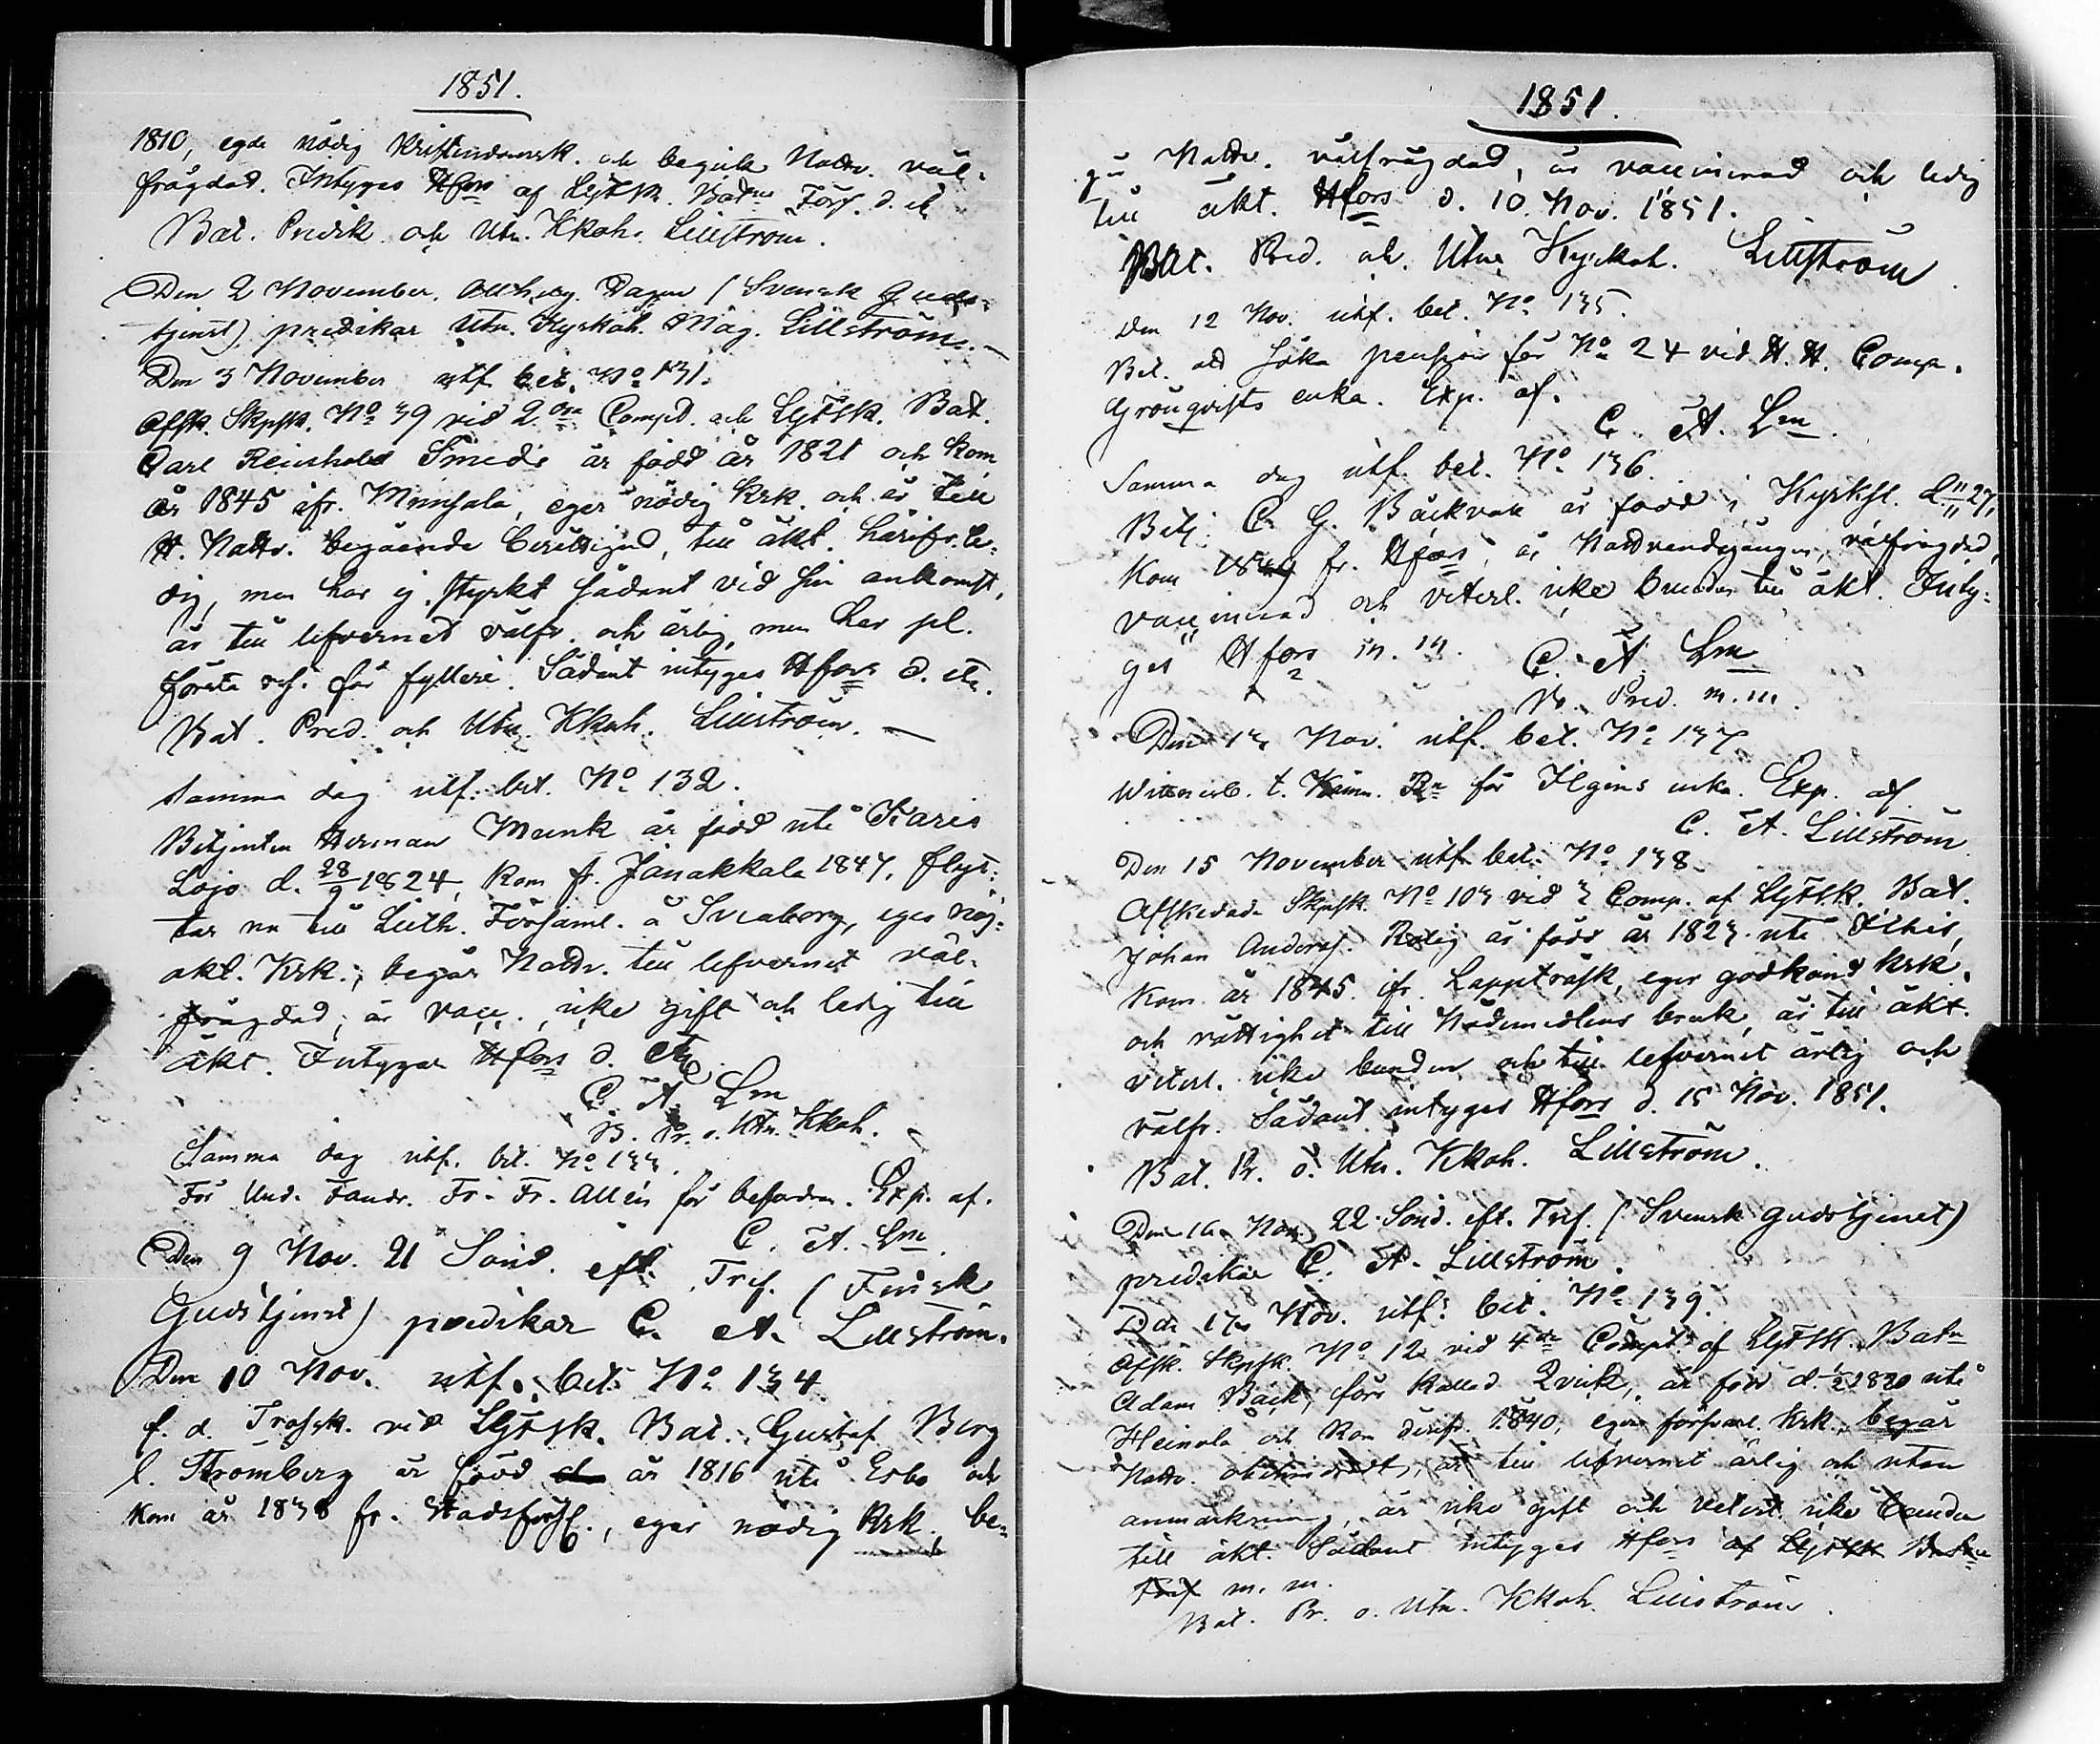 1851.
1810, egde nödig Kristendomsk. och begick Nattv. väl-
frägdad. Intygas Hfors af LgfSk. Batns Förs. d. ut
Bat. Predik. och Utn. Kkoh. Lillström.
Den 2 November. Allhelg. Dagen (Svensk Guds-
tjenst) predikar Utn. Kyrkoh. Mag. Lillström. —
Den 3 November utf. bet. No 131.
Afsk. Skpsk. No 39 vid 2dra Compd. och LgfSk. Bat.
Carl Reinhold Smeds är född år 1821 och kom
år 1845 ifr. Mumsala, eger nödig Krk. och är till
H. Nattv. begående berättigad, till äkt. härifr. le-
dig, men har ej styrkt sådant vid sin ankomst,
är till lefvernet välfr. och ärlig, men har pl.
första res. för fylleri. Sådant intygas Hfors d. etc.
Bat. Pred. och Utn. Kkoh. Lillström. —
Samma dag utf. bet. No 132.
Betjenten Herman Munk är född uti Karis
Lojo d. 28/9 1824, kom fr. Janakkala 1847, flyt-
tar nu till Luth. Församl. å Sveaborg, eger nöj-
akt. Krk., begår Nattv. till lefvernet väl-
frägdad, är vacc., icke gift och ledig till
äkt. Intygar Hfors d. etc
C. A. Lm
B. Pr. o. Utn. Kkoh.
Samma dag utf. bet. No 133.
För Und. Fandr. Fr. Fr. Allén för befordran. Exp. af.
C. A. Lm.
Den 9 Nov. 21 Sönd. eft. Tref. (Finsk
Gudstjenst) predikar C. A. Lillström.
Den 10 Nov. utf. bet. No 134
f. d. Trossk. vid LgfSk. Bat. Gustaf Berg
l. Strömberg är född d år 1816 uti Esbo och
kom år 1838 fr. Stadsförs., eger nödig Krk., be-
1851.
går Nattv. välfrägdad, är vaccinerad och ledig
till äkt. Hfors d. 10. Nov. 1851.
Bat. Pred. och. Utn. Kyrkoh. Lillström
Den 12 Nov. utf. bet. No 135.
Bet. att söka pension för No 24 vid H. H. Comp.
Grönqvists enka. Exp. af.
C. A. Lm.
Samma dag utf. bet. No 136.
Betj. C. G. Bäckvall är född i Kyrksl. 27,
kom 1849 fr. Hfors, är Nattvardsgången, välfrägdad,
vaccinerad och veterl. icke bunden till äkt. Inty-
gas Hfors m. m. C. A. Lm
B. Pred. m. m.
Den 13 Nov. utf. bet. No 137
Wittnesb. t. Käm. Rn för Ilgins enka. Exp. af
C. A. Lillström
Den 15 November utf. bet. No 138
Afskedade Skpsk. No 103 vid 3 Comp. af LgfSk. Bat.
Johan Anders. Rolig är född år 1823 uti Ithis,
kom år 1845 ifr. Lappträsk, eger godkänd Krk.
och rättighet till Nådemedlens bruk, är till äkt.
veterl. icke bunden och till lefvernet ärlig och
välfr. Sådant intygas Hfors d. 15 Nov. 1851.
Bat. Pr. o. Utn. Kkoh. Lillström.
Den 16 Nov. 22. Sönd. eft. Tref. (Svensk gudstjenst)
predikar C. A. Lillström.
Den 17 Nov. utf. bet. No 139.
Afsk. Skpsk. No 12 vid 4de Compt af LgfSk. Batn
Adam Bäck, förr kallad Qvick, är född d. 1/2 1820 uti
Heinola och kom derifr. 1840, eger försvarl. Krk., begår
Nattv. obehindradt, är till lefvernet ärlig och utan
anmärkning, är icke gift och veterl. icke bunden
till äkt. Sådant intygas Hfors af LgfSk Batns
Förs m. m.
Bat. Pr. o. Utn. Kkoh. Lillström.